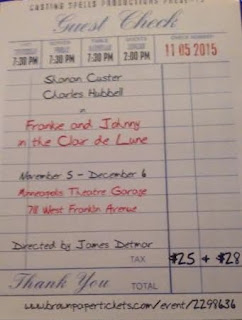 CASTING SPELLS PRODUCTIONS PRESENTS
Guest Check
CHECK NUMBER
7:30 PM 7:30 PM 7:30 PM 2:00 PM 11 05 2015
Shanan Custer
Charles Hubbell
in
Frankie and Johnny
in the Clair de Lune
November 5 - December 6
Minneapolis Theatre Garage
711 West Franklin Avenue
Directed by James Detmar
TAX $25 & $28
Thank You TOTAL
www.brownpapertickets.com/event/2298636